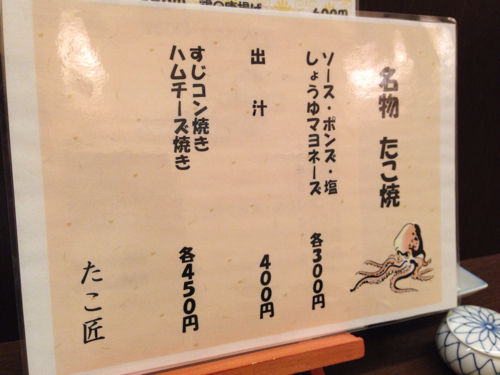 名物 たこ焼
ソース・ポンズ・塩
しょうゆマヨネーズ
各300円
出汁
400円
すじコン焼き
ハムチーズ焼き
各450円
たこ匠
600円